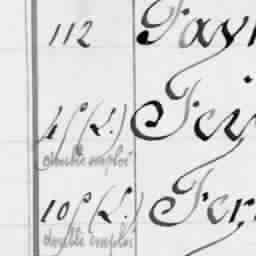 112 Fay
4f° (L.) Fei
double emploi
10f° (L.) Fer
double emploi